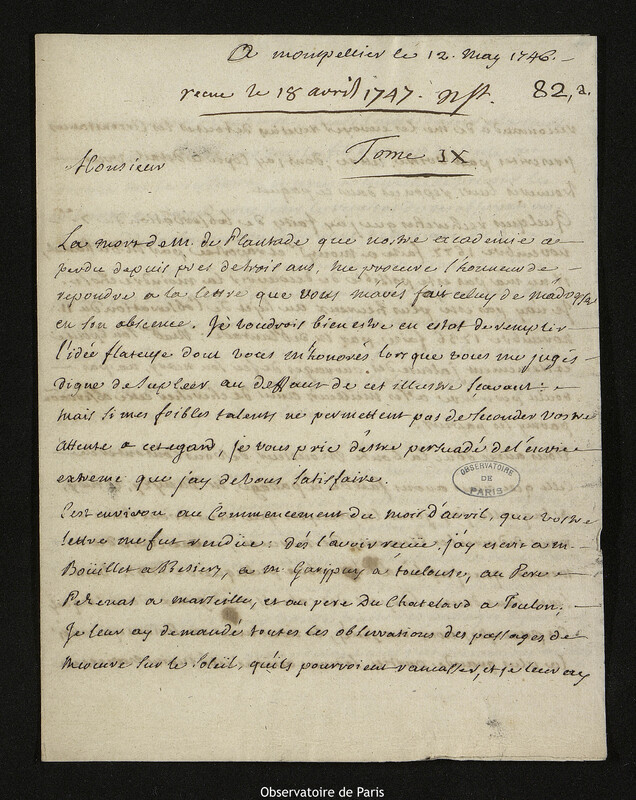 A montpellier le 12. may 1746. –
recue le 18 avril 1747. nst.
82, a.
Tome IX
Monsieur
La mort de M. de Plantade que nostre academie a
perdu depuis pres de trois ans, me procure l'honneur de
repondre a la lettre que vous m'avés fait celuy de
en son abscence. Je voudrois bien estre en estat de remplir
l'idée flateuse dont vous m'honorés lorsque vous me jugés
digne de supleer au deffaut de cet illustre sçavant: –
mais si mes foibles talents ne permettent pas de seconder vostre
attente a cet egard, je vous prie d'être persuadé de l'envie
extreme que j'ay de vous satisfaire.
OBSERVATOIRE
DE
PARIS
C'est environ au commencement du mois d'avril, que vostre
lettre me fut rendüe: dés l'avoir reçüe, j'ay escrit a m.
Boüillet a Besiers, a m. Garipuy a toulouse, au Pere –
Pezenas a marseille, et au pere Du Chatelard a Toulon,
Je leur ay demandé toutes les observations des passages de
mercure sur le soleil, qu'ils pourroient ramasser, et je leur ay
Observatoire de Paris